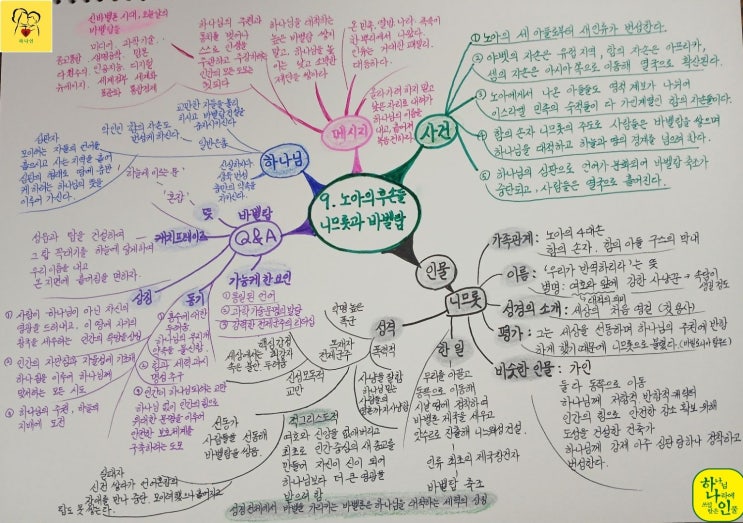 9. 노아의 후손들
니므롯과 바벨탑
사건
① 노아의 세 아들로부터 새 인류가 번성한다.
② 야벳의 자손은 유럽 지역, 함의 자손은 아프리카,
셈의 자손은 아시아 쪽으로 이동해 열국으로 확산된다.
③ 노아에게서 나온 아들들도 영적 계보가 나뉘어
이스라엘 민족의 수적들이 다 가인계열인 함의 자손들이다.
④ 함의 손자 니므롯의 주도로 사람들은 바벨탑을 쌓으며
하나님을 대적하고 하늘과 땅의 경계를 넘으려 한다.
⑤ 하나님의 심판으로 언어가 분화되어 바벨탑 건축이
중단되고, 사람들은 열국으로 흩어진다.
메시지
신바벨론 시대, 오늘날의
바벨탑들
미디어, 과학기술,
종교통합, 생명공학,
다원주의, 인공지능, 디지털
뉴에이지, 세계정부, 세계화
통합경제
하나님의 주권과
통치를 벗어나
스스로 인생을
인간의 모든 도모는
헛되다
하나님을 대적하는
높은 바벨탑 쌓이
말고, 하나님을 높
이는 낮고 소박한
제단을 쌓아라
온 민족, 열방, 나라, 족속이
한 뿌리에서 나왔다.
인류는 거대한 패밀리.
올라가려 하지 말고
낮은 자리로 내려가
하나님의 이름을
순종하라
하나님
심판자
모이려는 자들의 언어를
흩으시고 사는 지역을 흩어
심판의 형태로 땅에 충만
케 하려는 하나님의 뜻을
이루어 가신다.
악인인 함의 자손도
번성케 하신다.
교만한 자들을 흩어
바벨탑 건설을
중지시키신다
일반은총
신실하시다
생육 번성
충만의 약속을
지키신다.
Q&A
바벨탑
뜻
'하늘에 이르는 문'
'혼잡'
캐치프레이즈
성읍과 탑을 건설하여
그 탑 꼭대기를 하늘에 닿게 하여
우리 이름을 내고
온 지면에 흩어짐을 면하자.
상징
① 사람이 하나님이 아닌 자신의
영광을 드러내고, 이 땅에 자기의
왕국을 세우려는 인간의 욕망을 상징
② 인간의 자만심과 자율성에 기초해
하나님을 이루어 하나님께
맞서려는 모든 시도
③ 하나님의 주권, 하늘의
지배에 도전
동기
① 홍수에 대한
두려움
하나님의 무지개
약속을 불신함
② 힘과 세력과시
명성 추구
③ 인간이 하나님 되려는 교만
하나님 없이 인간의 힘으로
위대한 문명을 이루어
안전한 보호체계를
구축하려는 도모
가능케 한 요인
① 통일된 언어
② 과학기술문명의 발달
③ 강력한 전제군주의 리더십
인물
니므롯
가족관계: 노아의 4대손
함의 손자. 함의 아들 구스의 막내
이름: '우리가 반역하리라'는 뜻
별명: 여호와 앞에 강한 사냥꾼 → 속담이
생길 정도
성경의 소개: 세상의 처음 영걸 (첫 용사)
평가: 그는 세상을 선동하며 하나님의 주권에 반항
하게 했기 때문에 니므롯으로 불렸다.
비슷한 인물: 가인
둘 다 동쪽으로 이동
하나님께 저항적 반항적 캐릭터
인간의 힘으로 안전한 장소 확보 위해
도성을 건설한 건축가
하나님께 강제 이주 심판 당하나 정착하고
번성한다.
한 일
무리를 이끌고
동쪽으로 이동해
시날 땅에 정착하여
바벨론 제국을 세우고
앗수르로 진출해 니느웨성 건설
인류 최초의 제국창건자
바벨탑 축조
성격
악명 높은
폭군
독재자
전제군주
폭력적
사냥을 잘함
하나님 믿는
사람들을
핵심감정
세상에서는 최강자
속은 불안 두려움
신성모독적
교만
선동가
사람들을 선동해
바벨탑을 쌓음.
실패자
신전 쌓다가 언어혼란의
장애를 만나 중단. 모이려 했으나 흩어지고
탑도 못 쌓는다
적그리스도적
여호와 신앙을 없애버리고
최초로 인간 중심의 새 종교를
만들어 자신이 신이 되어
하나님보다 더 큰 영광을
받으려 함
성경전체에서 바벨을 가리키는 바벨론은 하나님을 대적하는 세력의 상징
하나님
나라에
쓰임
받는 인물